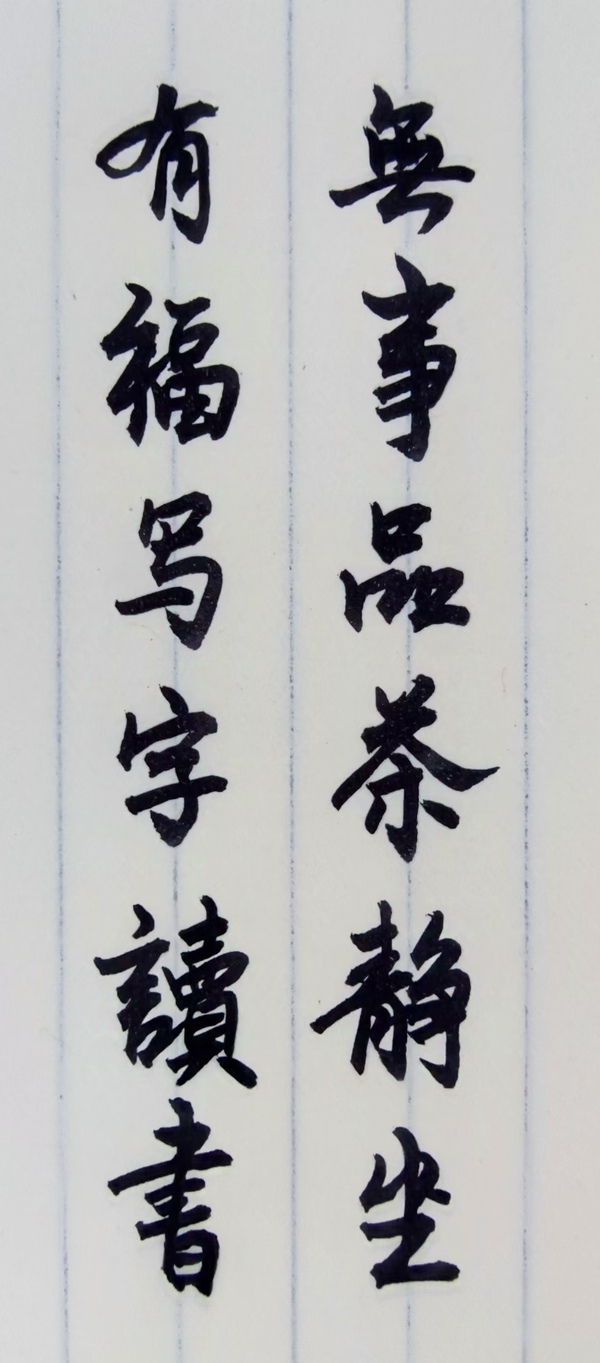 無事品茶静坐
有福写字讀書